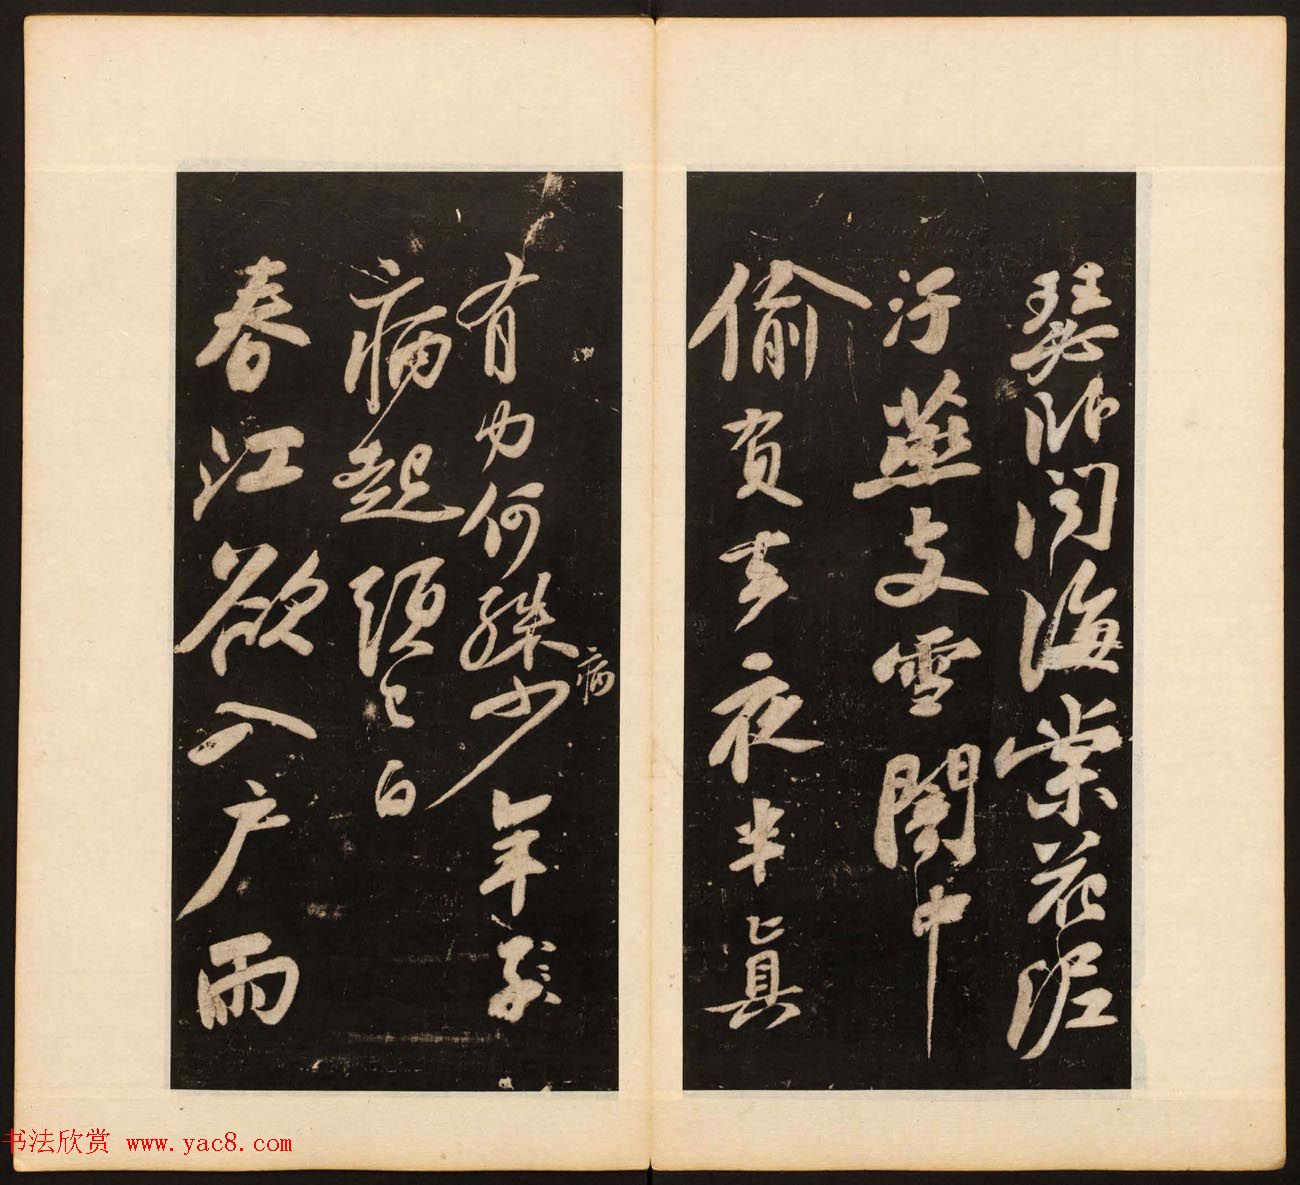 瑟臥聞海棠花泥
汙燕支雪闇中
偷負去夜半真
有力何殊少年子
病
病起頭已白
春江欲入户雨
书法欣赏 www.yac8.com